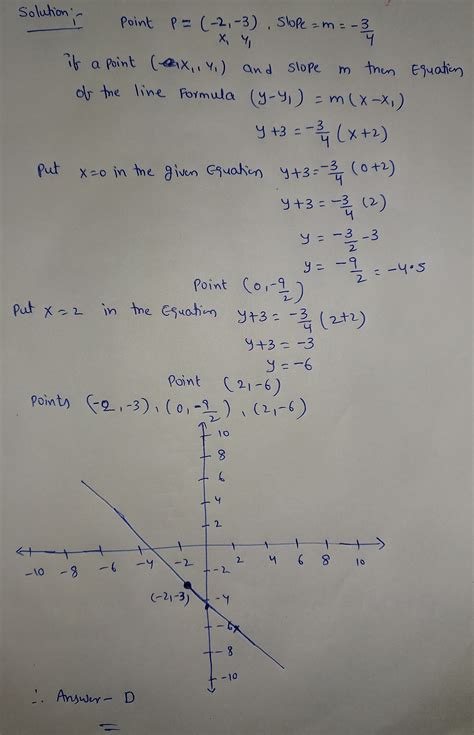 Solution:-
Point P = (-2,-3), Slope = m = -3/4
x₁ y₁
if a point (x₁, y₁) and slope m then Equation
of the line Formula (y-y₁) = m(x-x₁)
y+3 = -3/4 (x+2)
Put x=0 in the given Equation y+3 = -3/4 (0+2)
y+3 = -3/4 (2)
y = -3/2 -3
y = -9/2 = -4.5
Point (0, -9/2)
Put x=2 in the Equation y+3 = -3/4 (2+2)
y+3 = -3
y = -6
Point (2,-6)
Points (-2,-3), (0, -9/2), (2,-6)
10
8
6
4
2
-10 -8 -6 -4 -2 2 4 6 8 10
-2
(-2,-3) -4
-6
-8
-10
∴ Answer - D